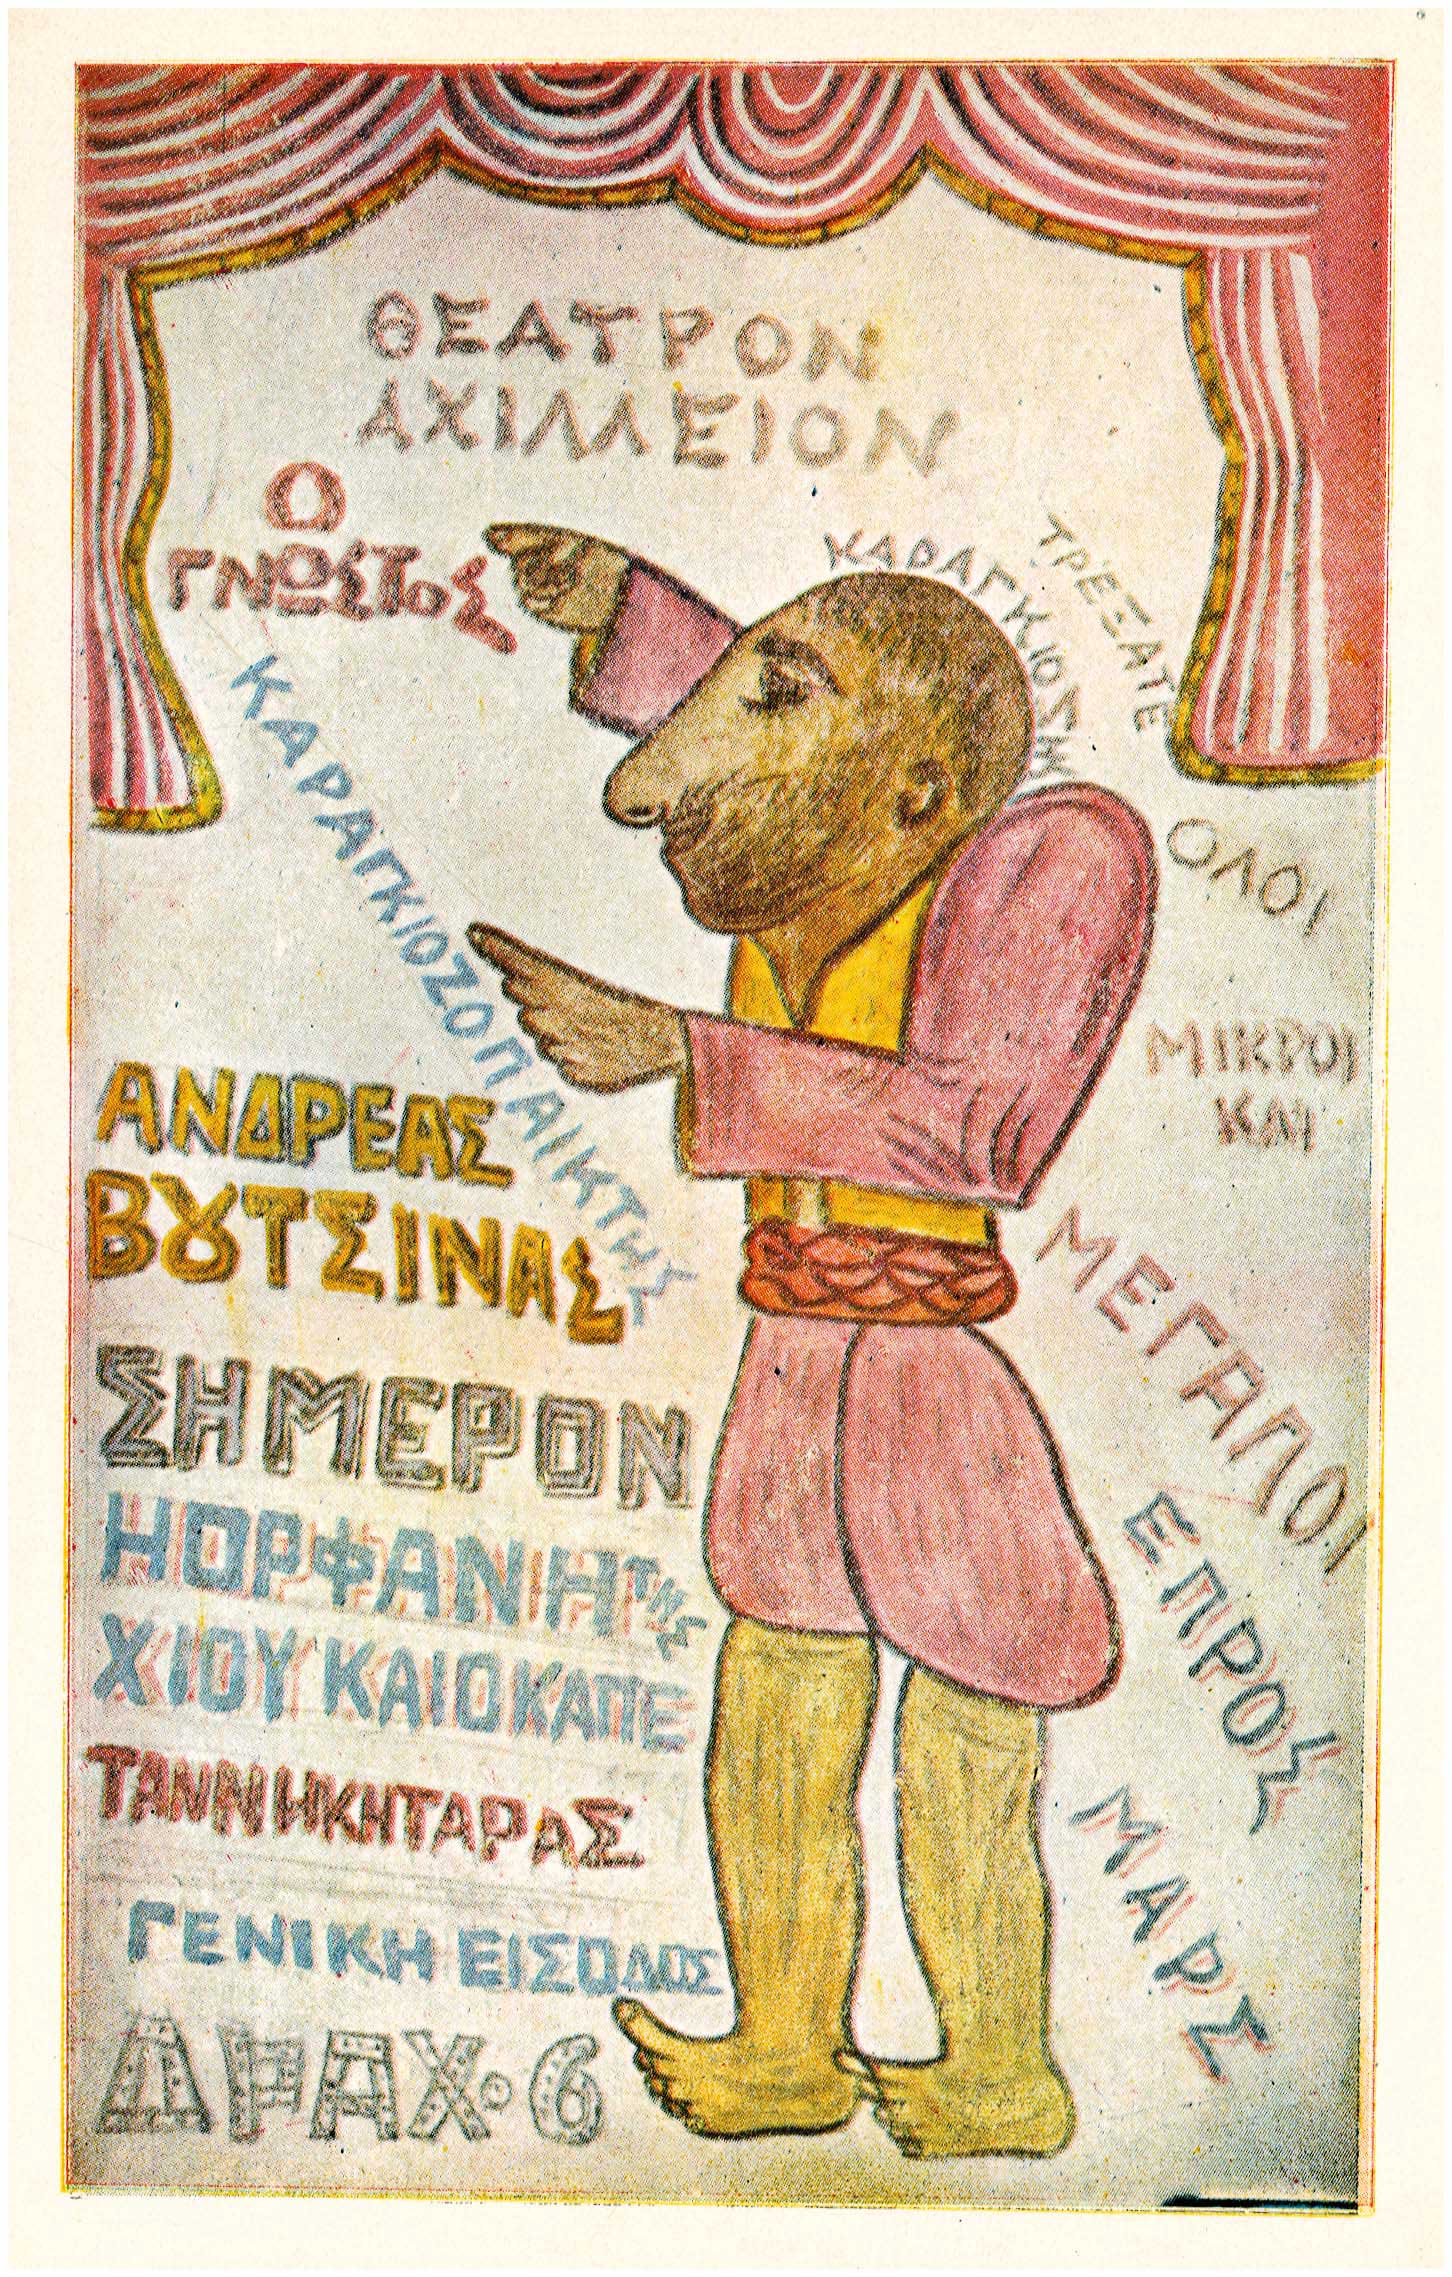 ΘΕΑΤΡΟΝ
ΑΧΙΛΛΕΙΟΝ
Ο
ΓΝΩΣΤΟΣ
ΚΑΡΑΓΚΙΟΖΟΠΑΙΚΤΗΣ
ΑΝΔΡΕΑΣ
ΒȢΤΣΙΝΑΣ
ΣΗΜΕΡΟΝ
Η ΟΡΦΑΝΗ ΤΗΣ
ΧΙΟΥ ΚΑΙ Ο ΚΑΠΕ
ΤΑΝΝΗΚΗΤΑΡΑΣ
ΓΕΝΙΚΗ ΕΙΣΟΔΟΣ
ΔΡΑΧ. 6
ΚΑΡΑΓΚΙΟΖΗ
ΤΡΕΞΑΤΕ
ΟΛΟΙ
ΜΙΚΡΟΙ
ΚΑΙ
ΜΕΓΑΛΟΙ
ΕΠΡΟΣ
ΜΑΡΣ